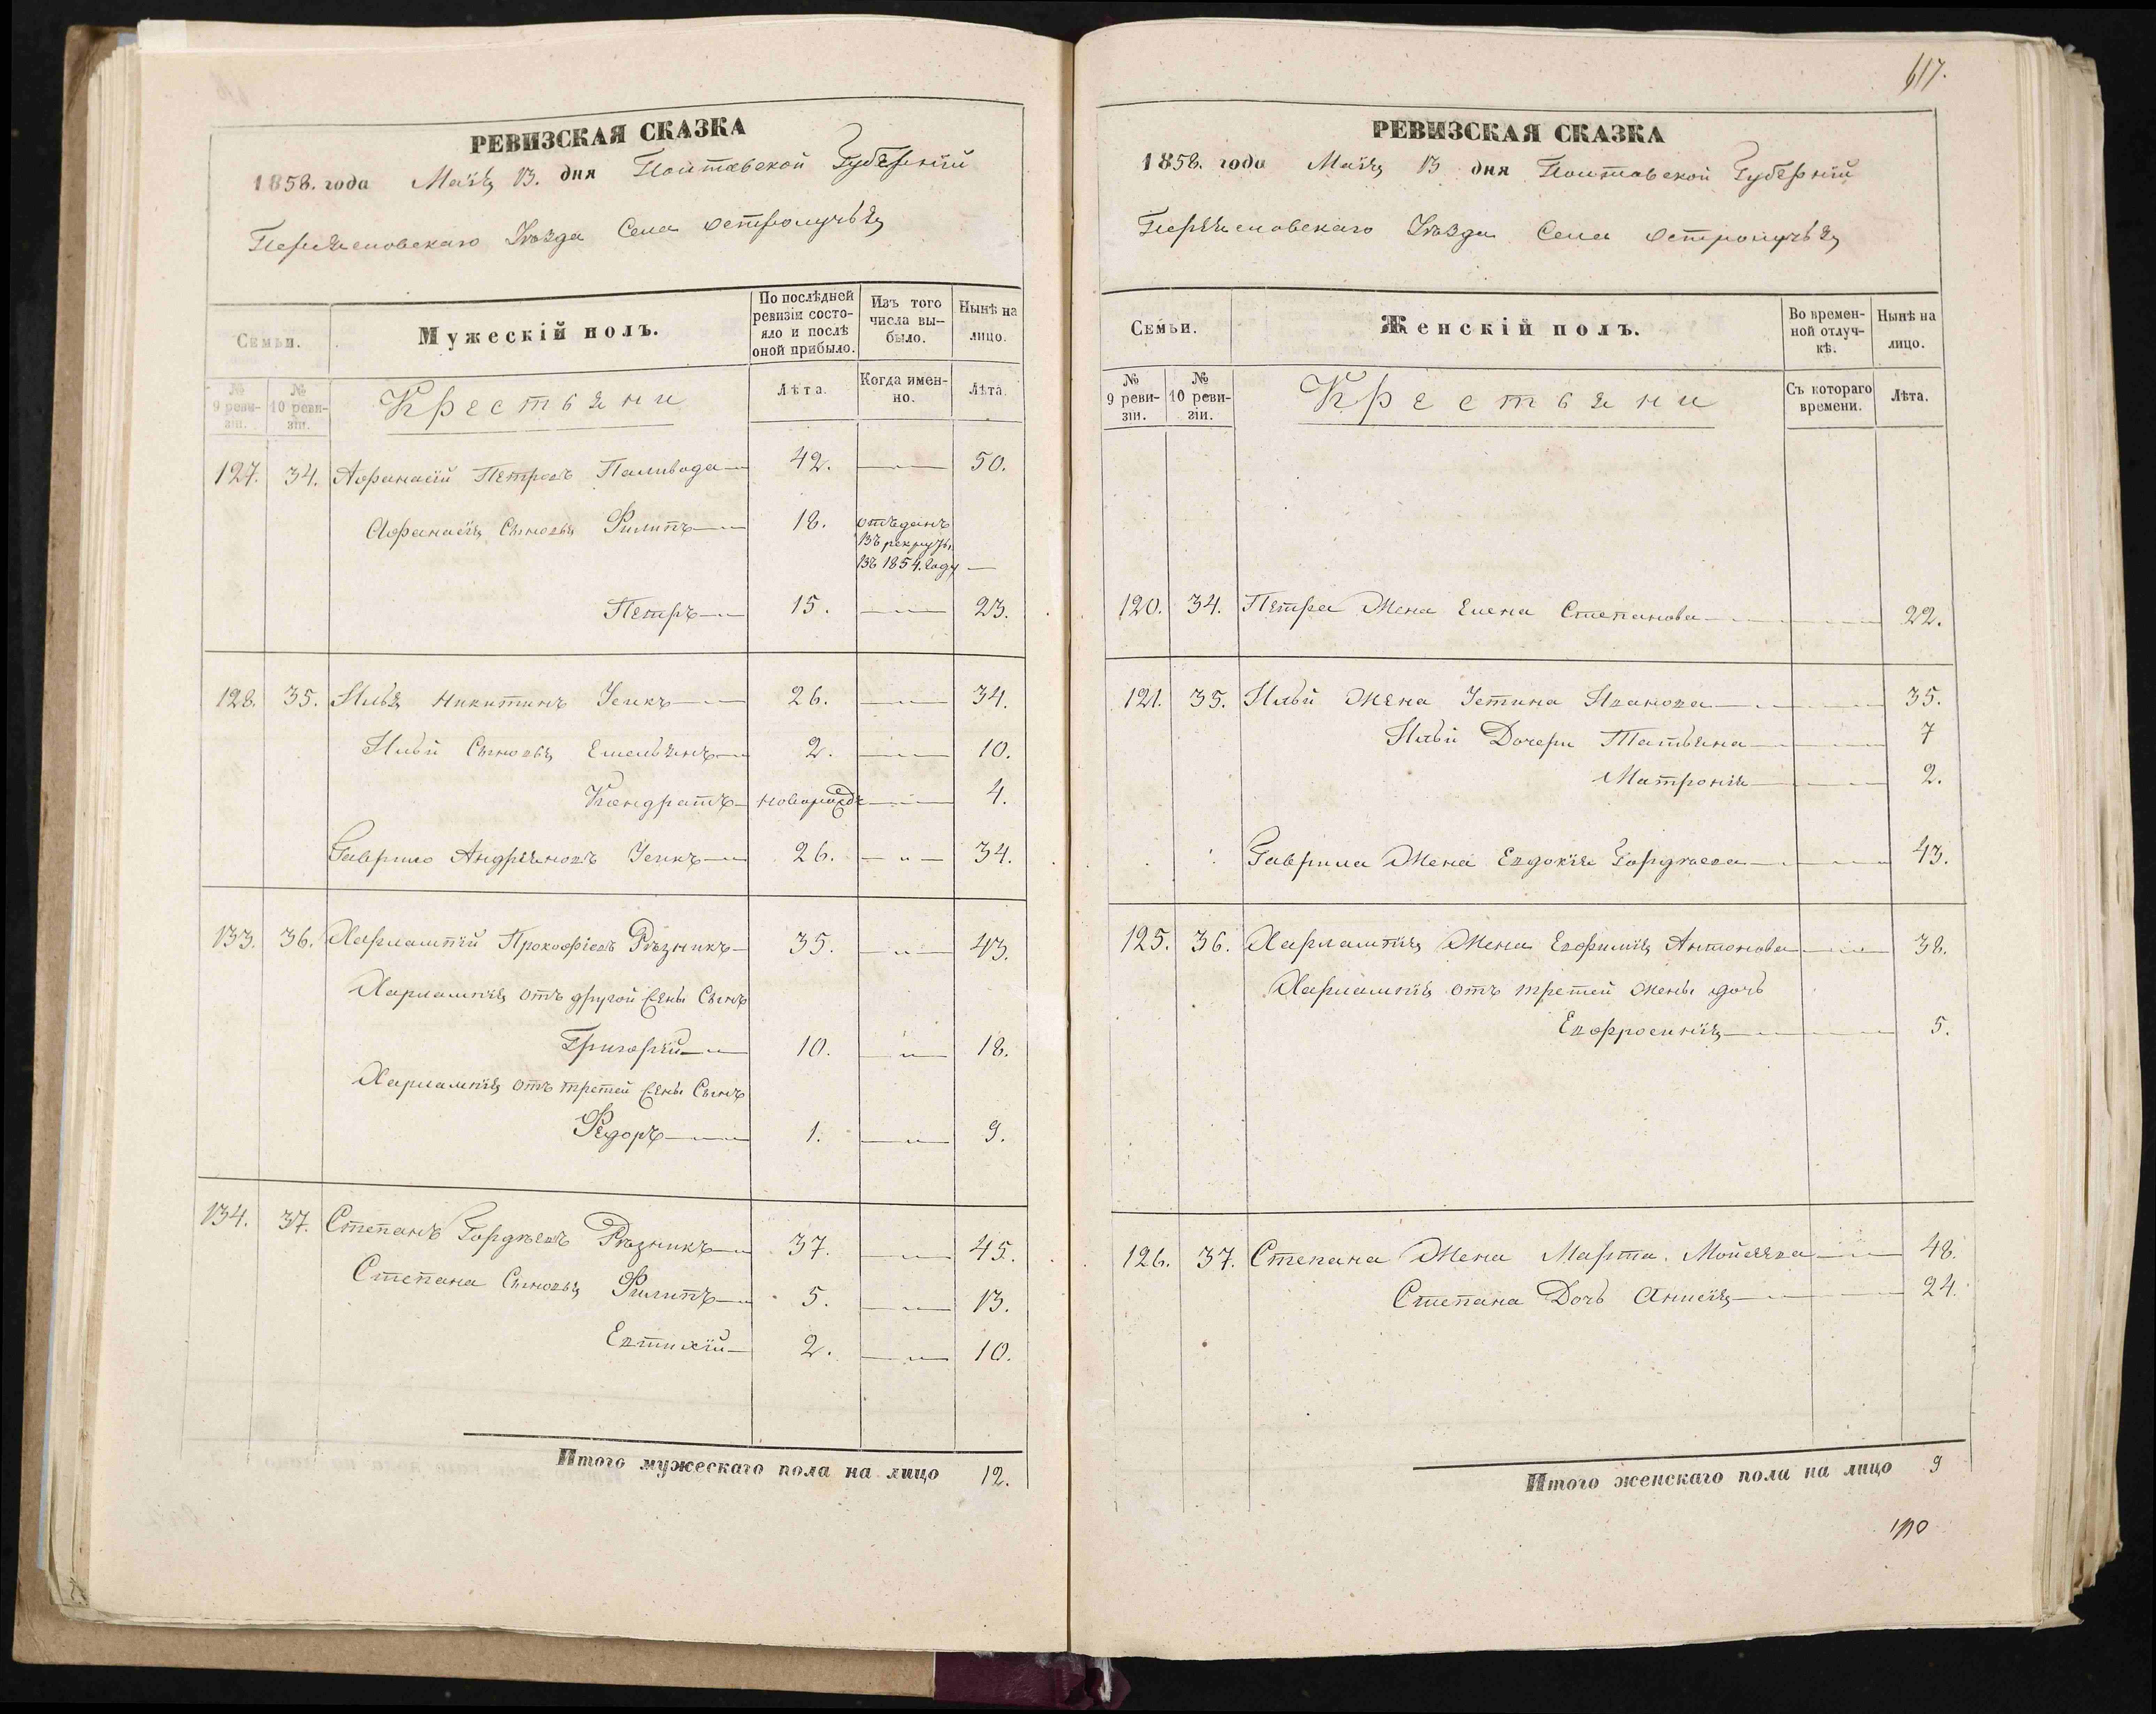 617.
РЕВИЗСКАЯ СКАЗКА
1858. года Маія 13. дня Полтавской Губерніи
Переяславскаго Уѣзда Села Остролучья
Семьи.
Мужескій полъ.
По послѣдней ревизіи состояло и послѣ оной прибыло.
Изъ того числа выбыло.
Нынѣ на лицо.
№ 9 ревизіи.
№ 10 ревизіи.
Крестьяни
Лѣта.
Когда именно.
Лѣта.
127. 34. Афанасій Петровъ Паливода 42. 50.
Афанасія Сыновья Филипъ 18. отъданъ
въ рекруты
въ 1854. году
Петръ 15. 23.
128. 35. Илья Никитинъ Усикъ 26. 34.
Ильи Сыновья Емельянъ 2. 10.
Кондратъ новорожд 4.
Гаврило Андреяновъ Усикъ 26. 34.
133. 36. Харлампій Прокофіевъ Рѣзникъ 35. 43.
Харлампія отъ другой жены Сынъ
Григорій 10. 18.
Харлампія отъ третей жены Сынъ
Федоръ 1. 9.
134. 37. Степанъ Гордѣевъ Рѣзникъ 37. 45.
Степана Сыновья Филипъ 5. 13.
Евтихій 2. 10.
Итого мужескаго пола на лицо 12.
РЕВИЗСКАЯ СКАЗКА
1858. года Маія 13 дня Полтавской Губерніи
Переяславскаго Уѣзда Села Остролучья
Семьи.
Женскій полъ.
Во временной отлучкѣ.
Нынѣ на лицо.
№ 9 ревизіи.
№ 10 ревизіи.
Крестьяни
Съ котораго времени.
Лѣта.
120. 34. Петра Жена Елена Степанова 22.
121. 35. Ильи Жена Устина Иванова 35.
Ильи Дочери Татьяна 7
Матрония 2.
Гаврила Жена Евдокія Гордѣева 43.
125. 36. Харлампія Жена Евфимія Антонова 38.
Харлампія отъ третей жены дочь
Евфросинія 5.
126. 37. Степана Жена Марта Мойсеева 48.
Степана Дочь Анисія 24.
Итого женскаго пола на лицо 9